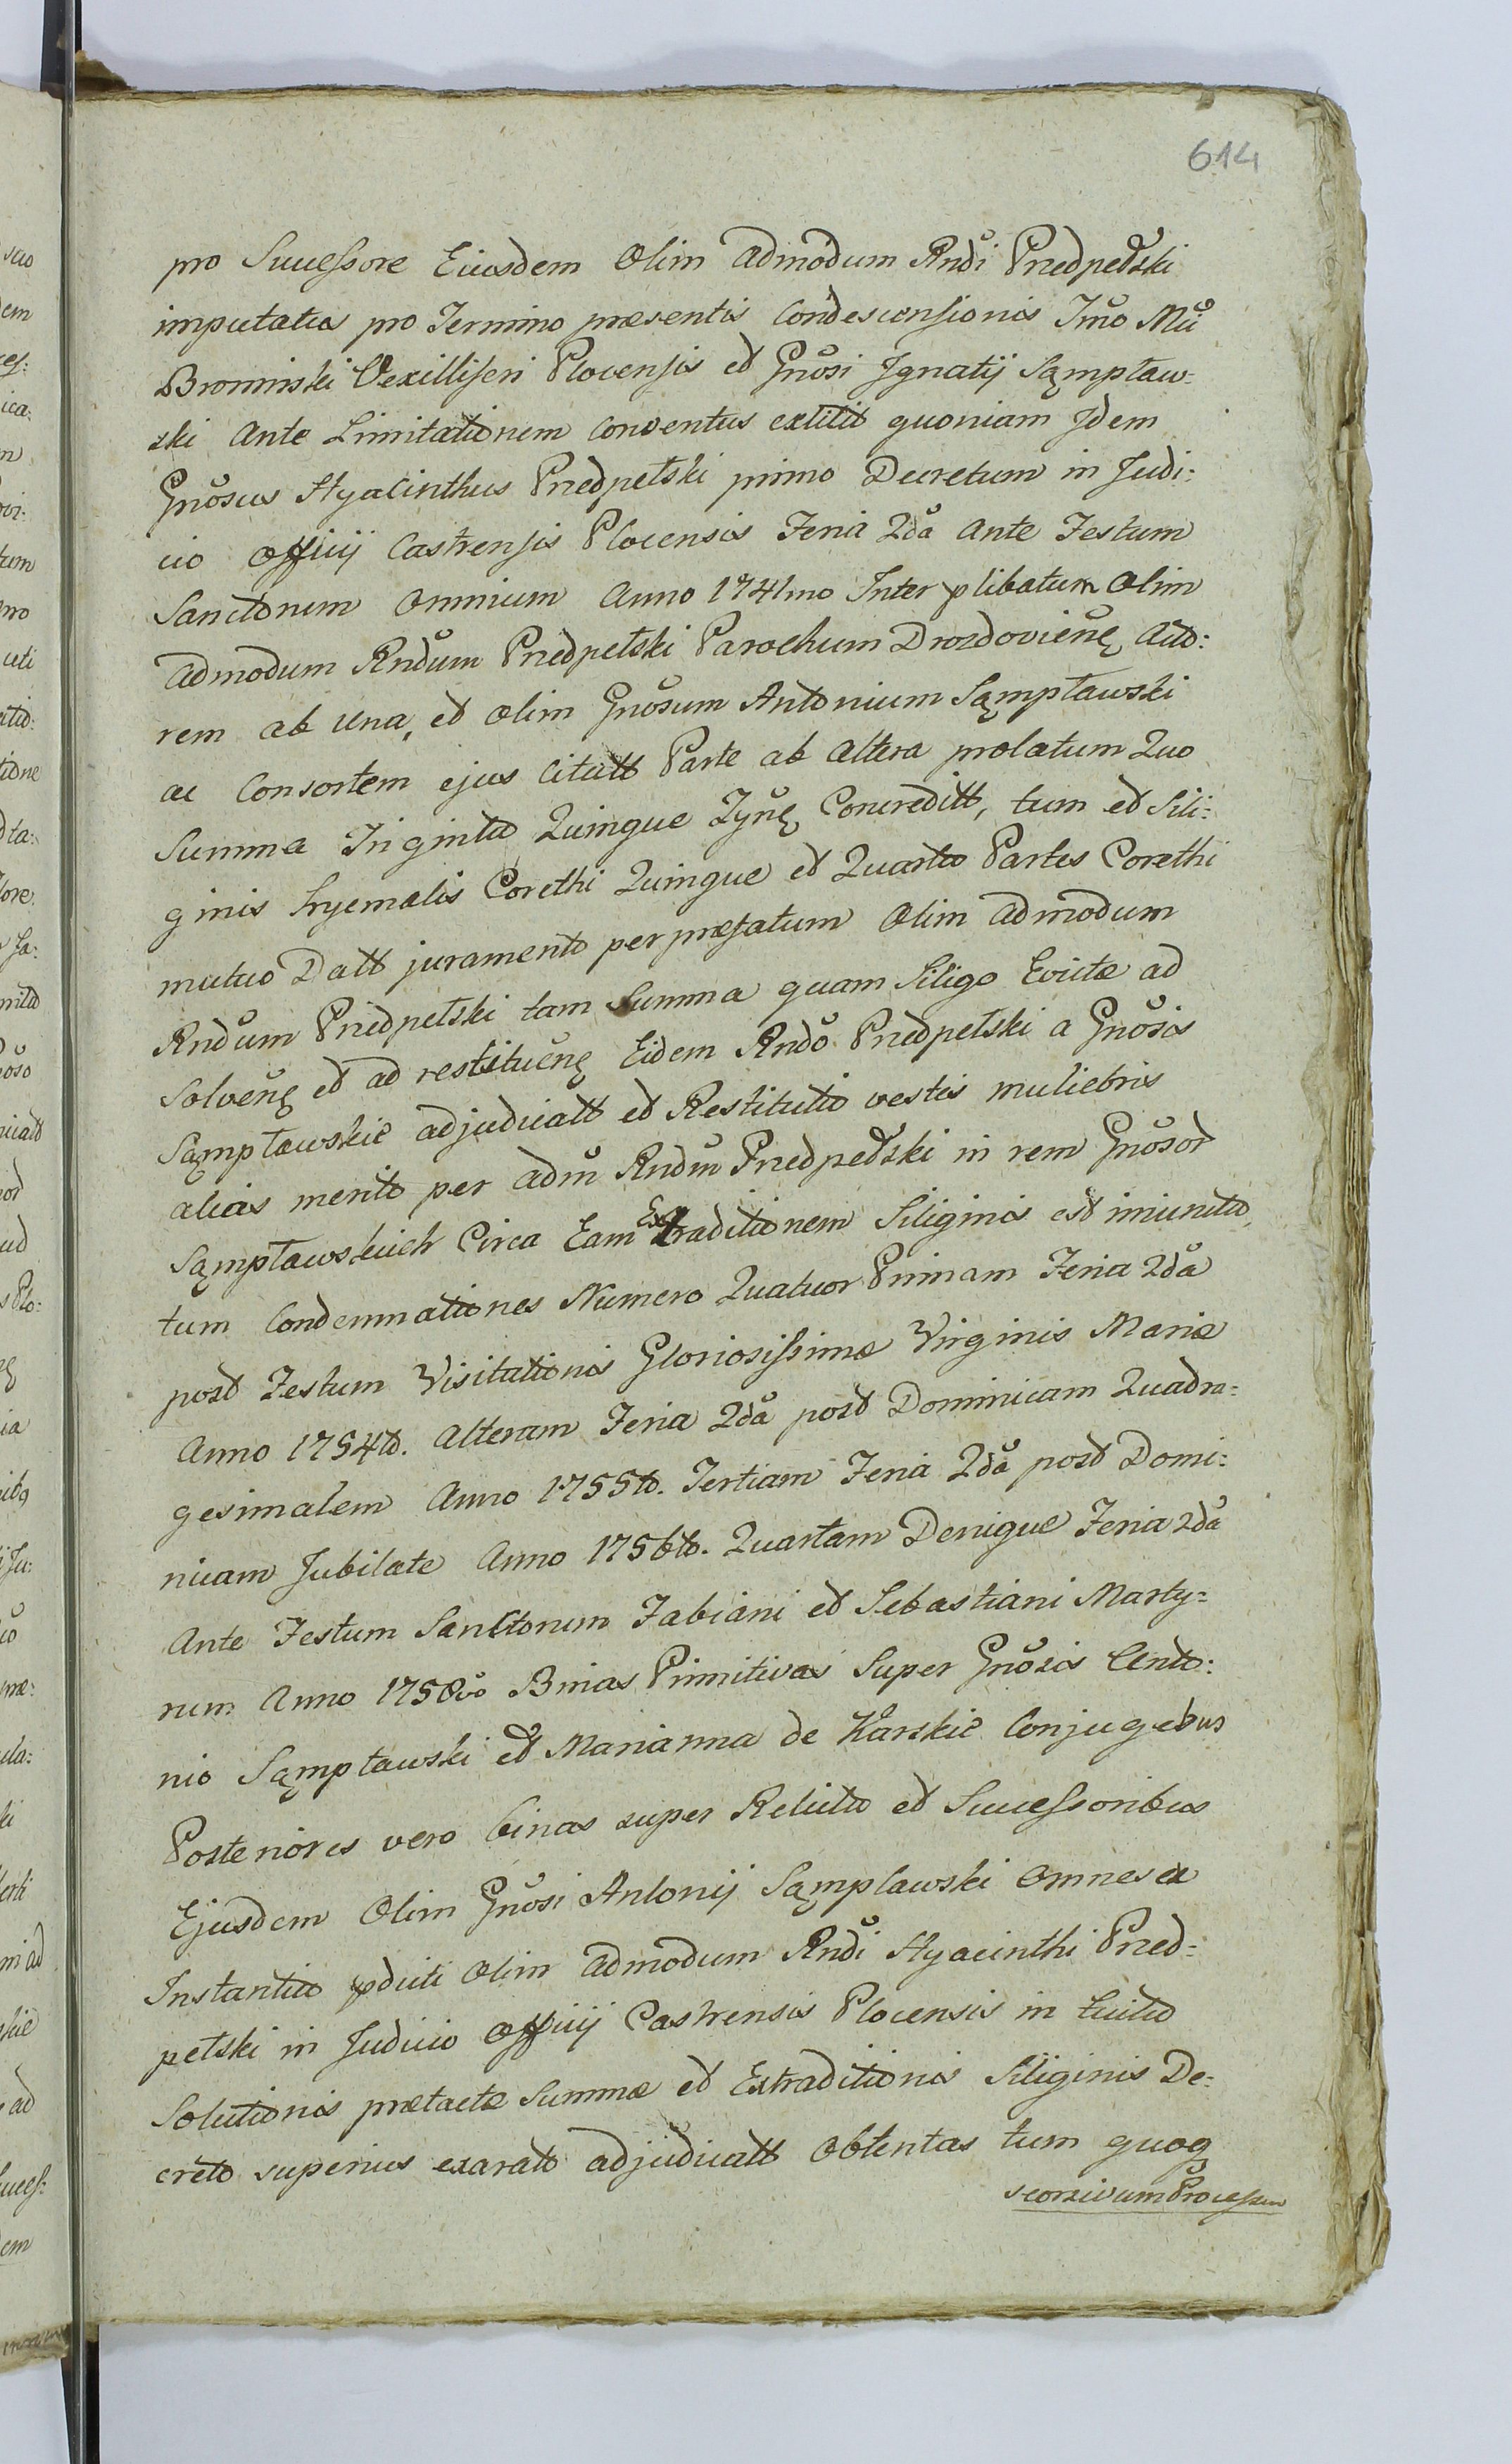 614
pro Successore Ejusdem Olim Admodum Rndi Przedpełski
imputata pro Termino præsentis Condescensionis Imo Mu
Bromirski Vexilliferi Plocensis et Gnosi Ignatij Sąmpław-
ski Ante Limitationem Conventus extitit quoniam Idem
Gnosus Hyacinthus Przedpełski primo Decretum in Judi:
cio Officij Castrensis Plocensis Feria 2da Ante Festum
Sanctorum Omnium Anno 1741mo Inter plibatum Olim
Admodum Rndum Przedpełski Parochum Drozdovienę Acto:
rem ab una, et Olim Gnosum Antonium Sąmpławski
ac Consortem ejus Citatt Parte ab altera prolatum Quo
Summa Triginta Quinque Tynę Concreditt, tum et Sili:
ginis hyemalis Corethi Quinque et Quarta Partes Corethi
mutuo Datt juramento per præfatum Olim Admodum
Rndum Przedpełski tam Summa quam Siligo Evictæ ad
Solvenę et ad restituenę Eidem Rndo Przedpełski a Gnosis
Sąmpławskie adjudicatt et Restitutio vestis muliebris
alias merito per adm Rndm Przedpełski in rem Gnosor
Sąmpławskich Circa Eam Extraditionem Siliginis est iniuncta
tum Condemnationes Numero Quatuor Primam Feria 2da
post Festum Visitationis Gloriosissimæ Virginis Mariæ
Anno 1754to. Alteram Feria 2da post Dominicam Quadra-
gesimalem Anno 1755to. Tertiam Feria 2da post Domi:
nicam Jubilate Anno 1756to. Quartam Denique Feria 2da
Ante Festum Sanctorum Fabiani et Sebastiani Marty-
rum Anno 1758vo Binas Primitivas Super Gnosis Anto:
nio Sąmpławski et Marianna de Karskie Conjugebus
Posteriores vero binas super Relicta et Successoribus
Ejusdem Olim Gnosi Antonij Sąmplawski Omnes ex
Instantia pdicti Olim Admodum Rndi Hyacinthi Przed-
pełski in Judicio Officij Castrensis Plocensis in
Solutionis prætactæ Summæ et Extraditionis Siliginis De-
creto superius exarato adjudicatt Obtentas tum quoq
scorsivum Processum